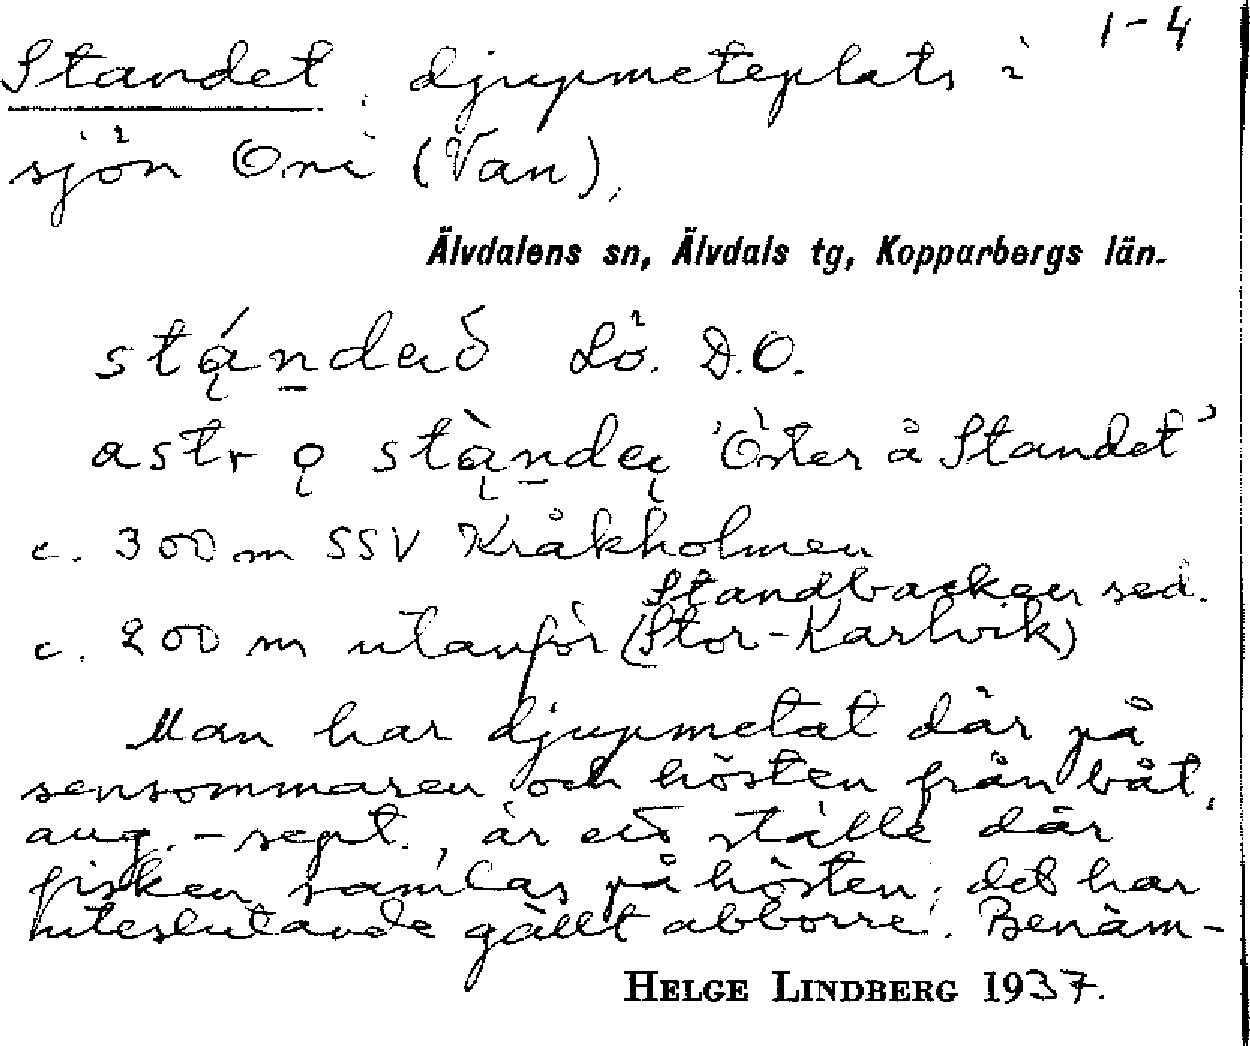 1-4
Standet, djupmeteplats i
sjön Oni (Van),
Älvdalens sn, Älvdals tg, Kopparbergs län.
stą́n̲deð Lö. D.O.
astr ǫ stą̀n̲dę 'Öster å Standet'
c. 300 m SSV Kråkholmen
Standbacken sed.
c. 200 m utanför (Stor-Karlvik)
Man har djupmetat där på
sensommaren och hösten från båt,
aug.-sept., är ett ställe där
fisken samlas på hösten; det har
uteslutande gällt abborre. Benäm-
HELGE LINDBERG 1937.